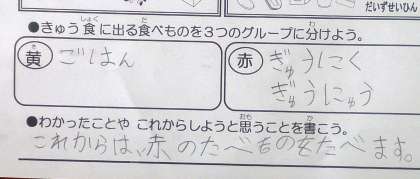 だいずせいひん
●きゅう食に出る食べものを3つのグループに分けよう。
黄 ごはん
赤 ぎゅうにく
ぎゅうにゅう
●わかったことや これからしようと思うことを書こう。
これからは、赤、のたべものをたべます。